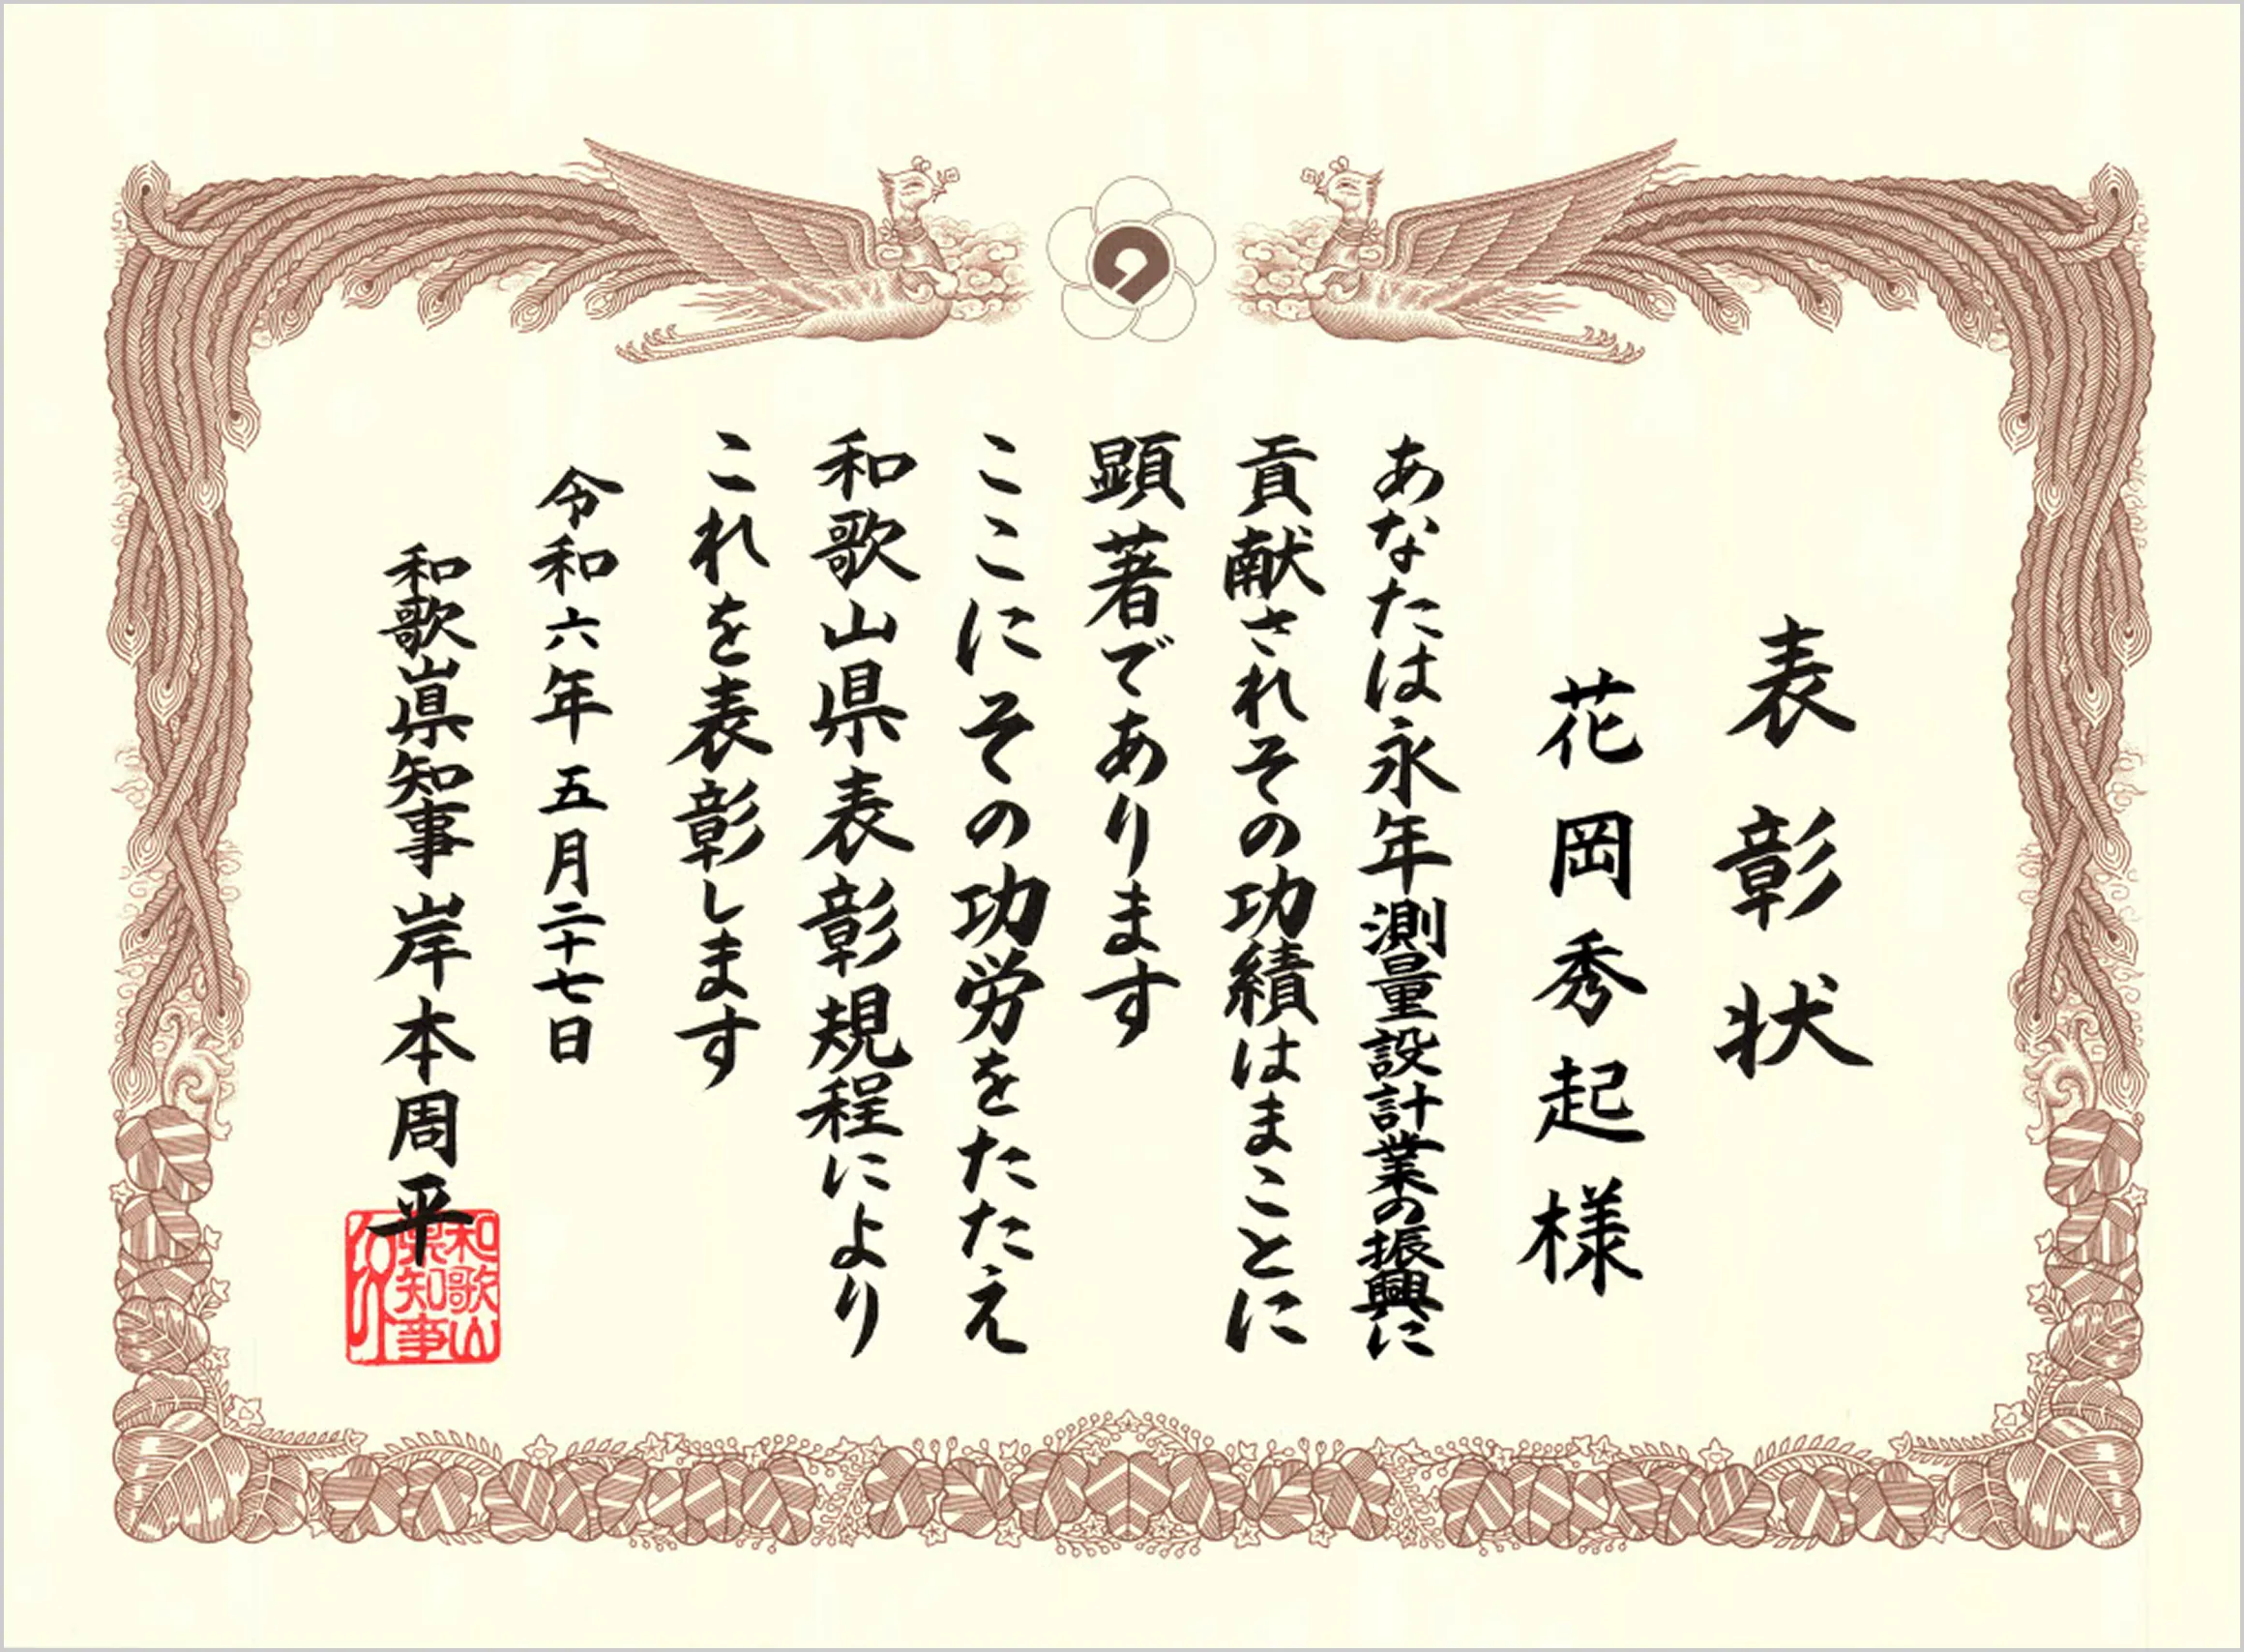 表彰状
花岡秀起様
あなたは永年測量設計業の振興に
貢献されその功績はまことに
顕著であります
ここにその功労をたたえ
和歌山県表彰規程により
これを表彰します
令和六年五月二十七日
和歌山県知事岸本周平
和歌山
県知事
之印